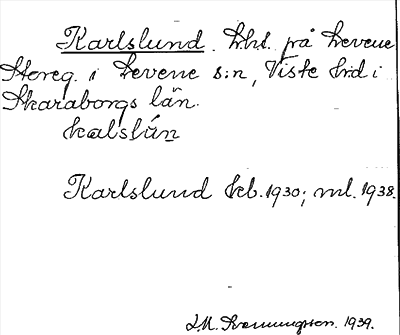 Karlslund. lht. på Levene
Storeg. i Levene s:n, Viste hd i
Skaraborgs län.
kalslún
Karlslund kb. 1930; ml. 1938.
1939.